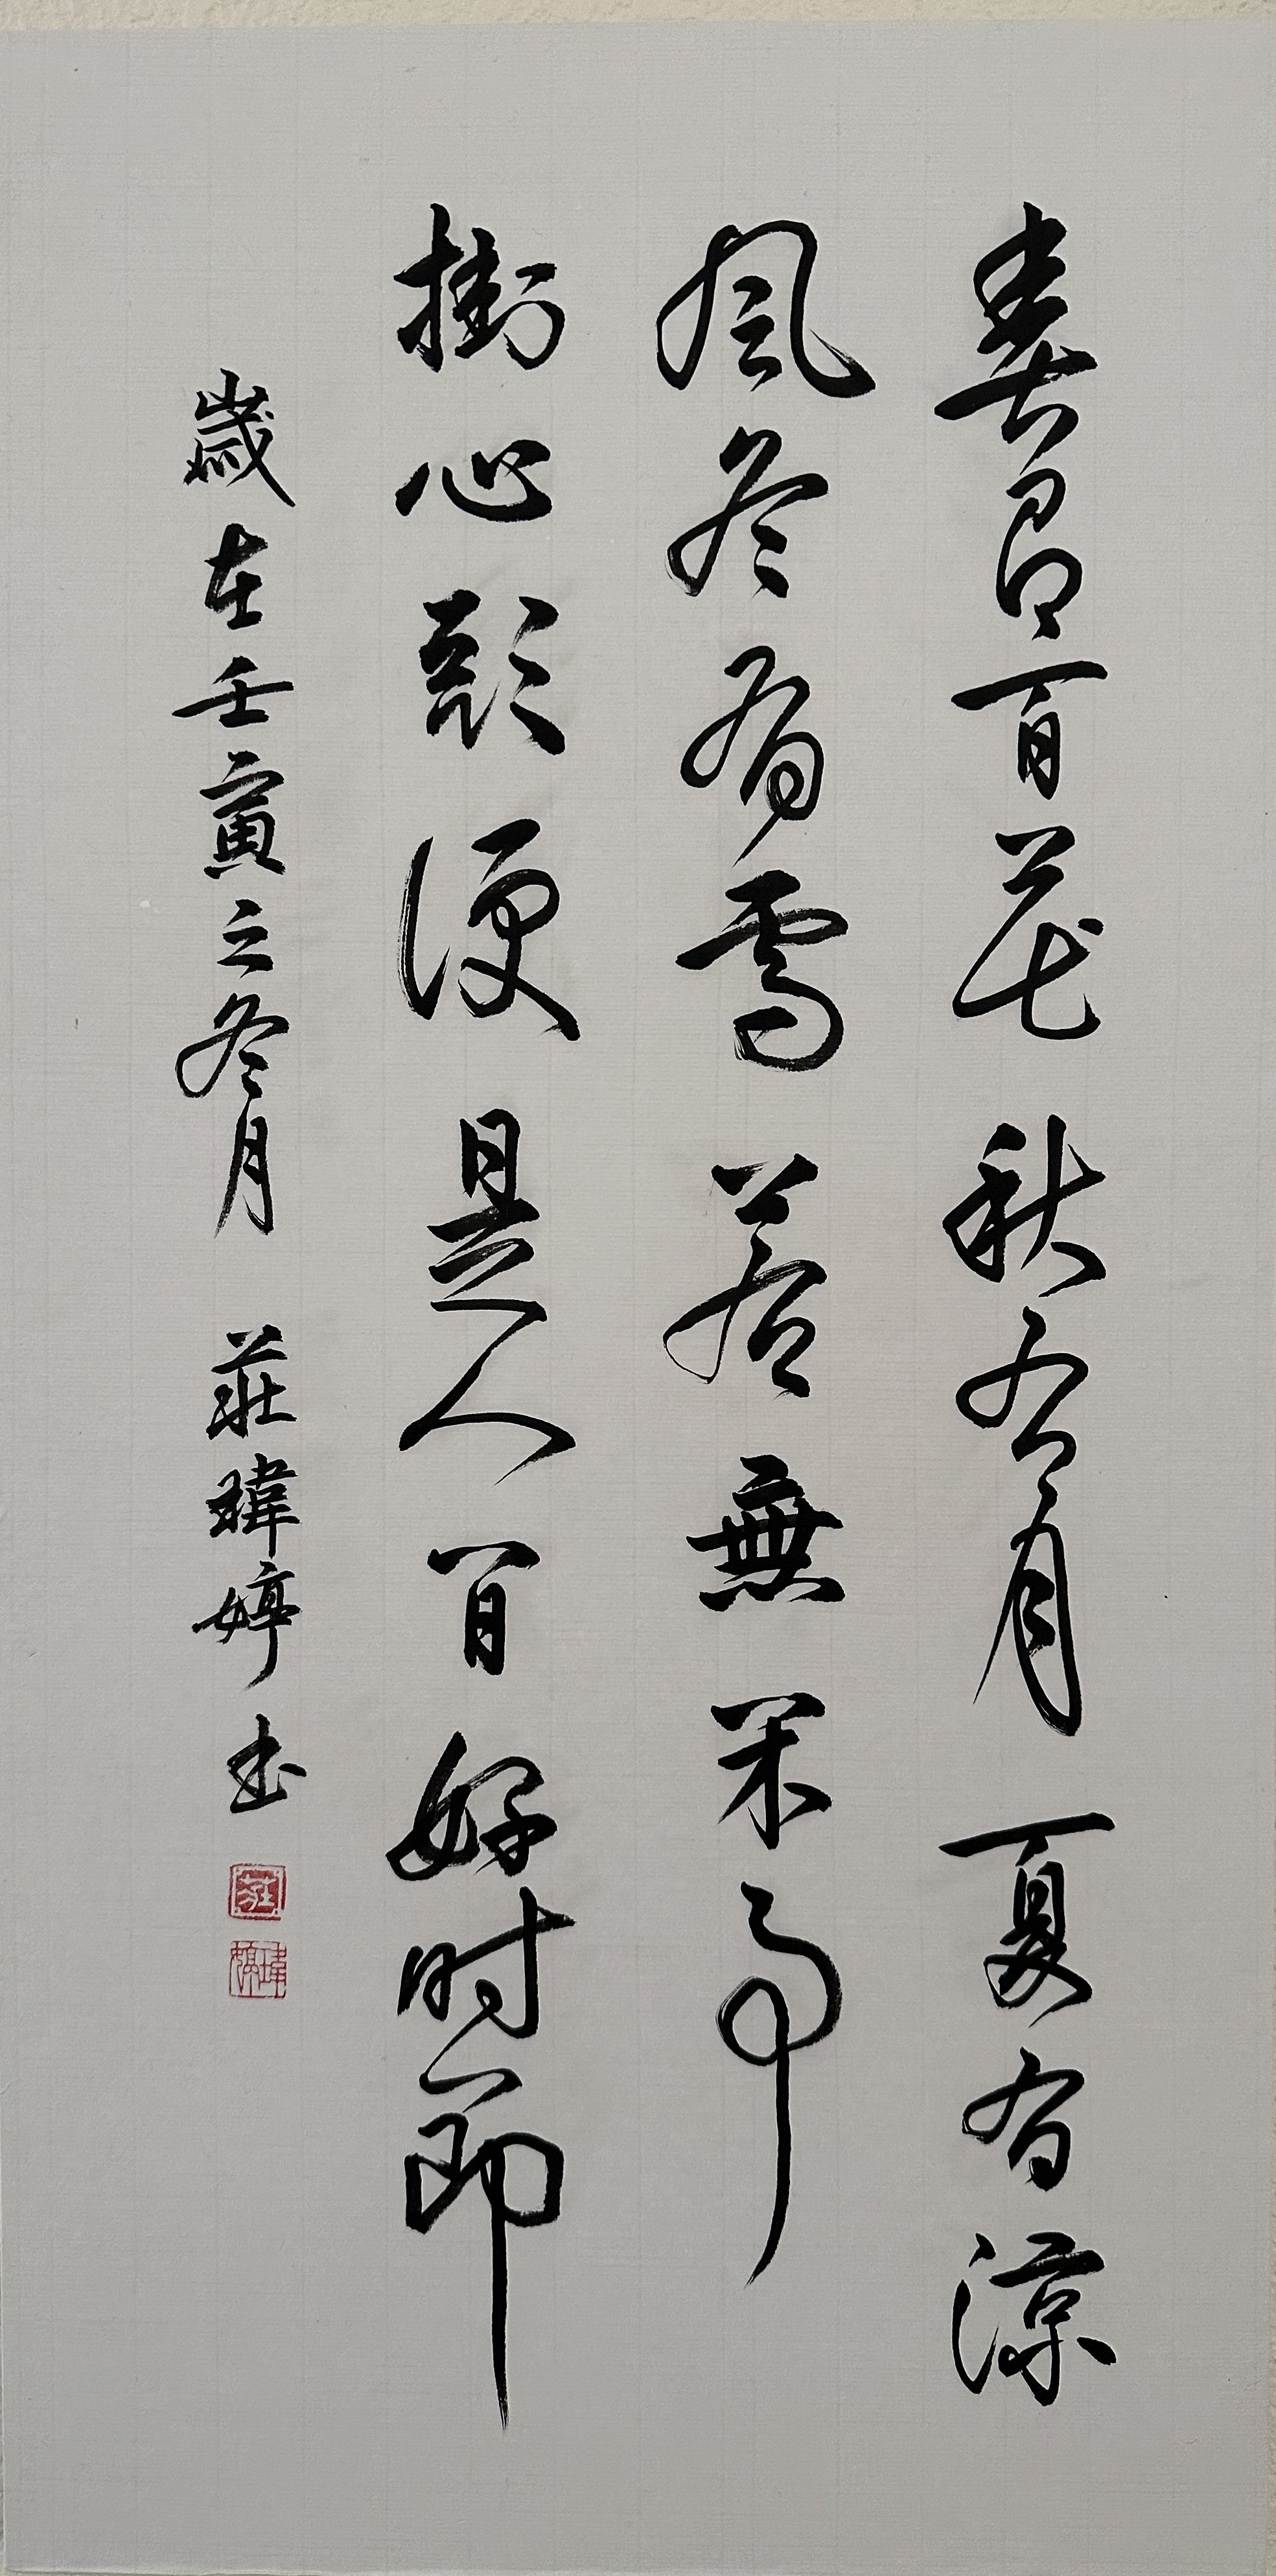 春有百花秋有月夏有涼
風冬有雪若無閑事
掛心頭便是人間好時節
歲在壬寅之冬月 莊瑋婷書
莊
瑋婷